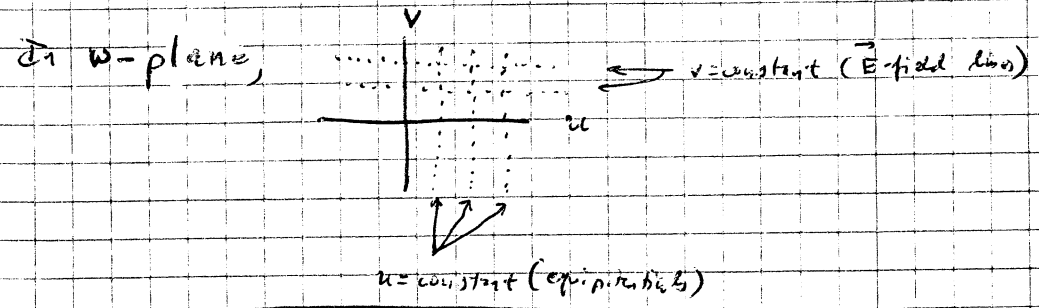 V
In w-plane,
v=constant (E-field lines)
u
u=constant (equipotentials)